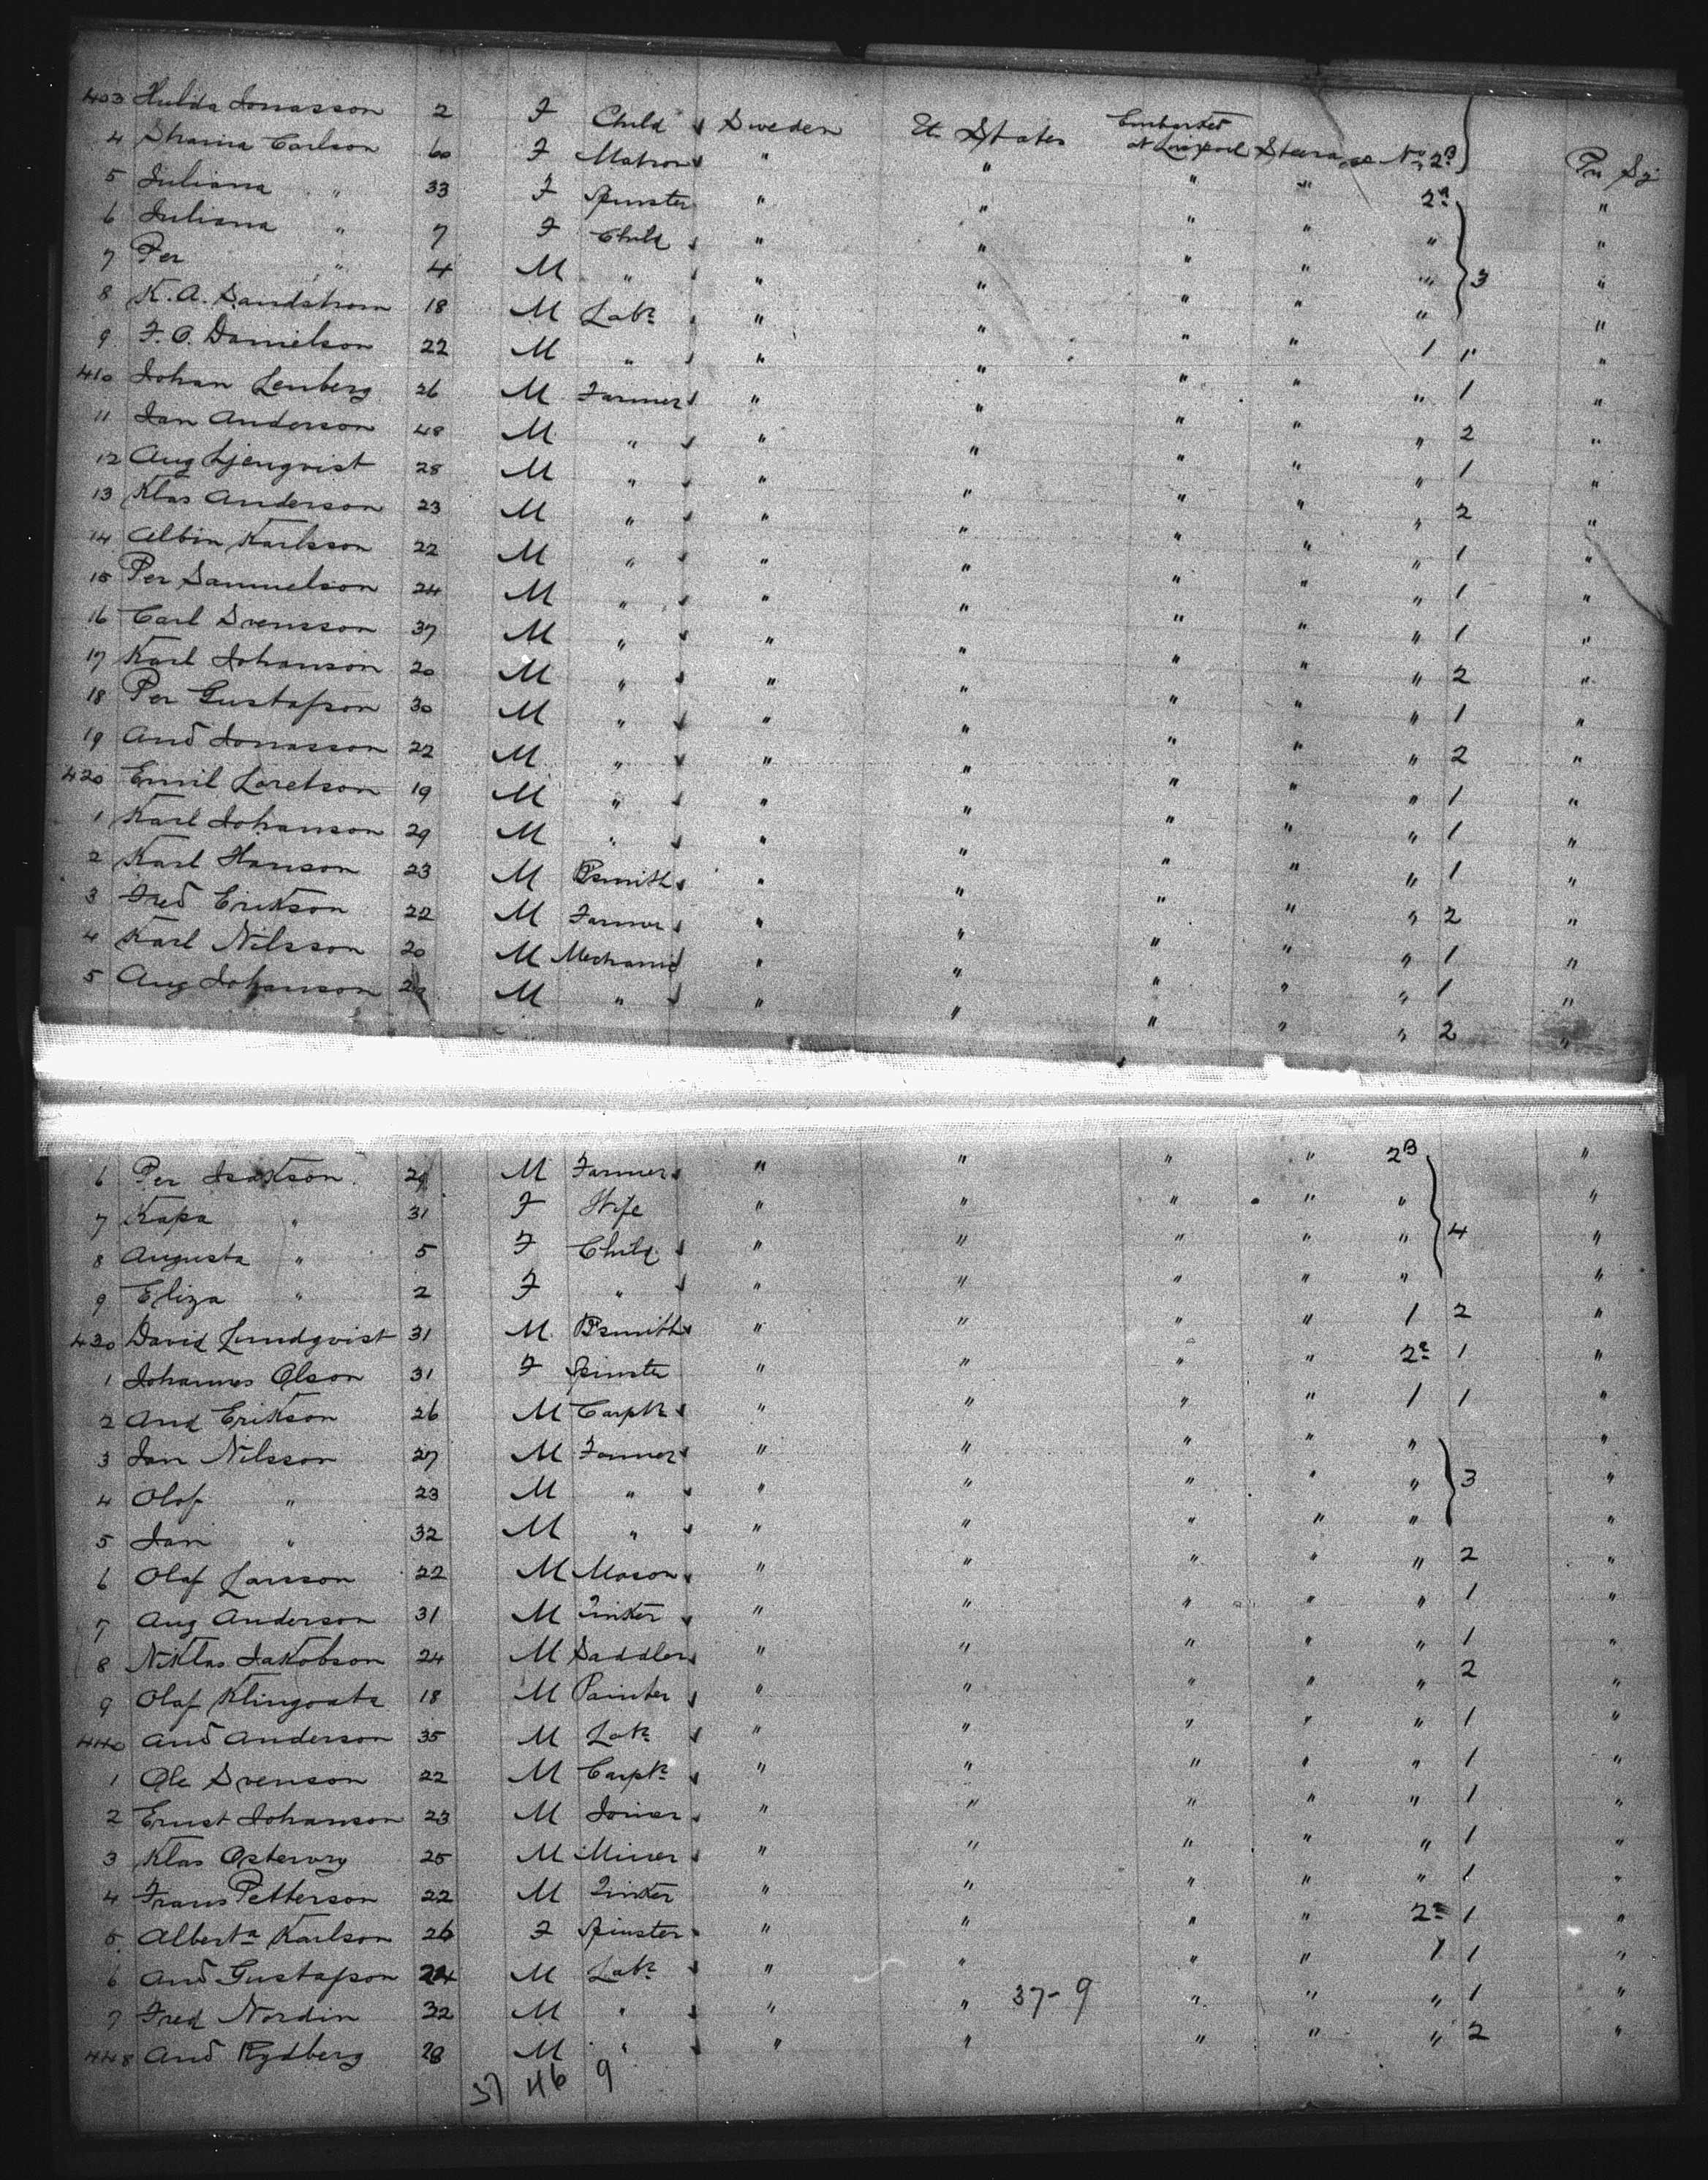 403 Hulda Jonasson 2 F Child Sweden U. States Embarked at Liverpool Steerage No 2B Pr Sj
4 Carlson 60 F Matron " " " " 2a "
5 Juliana " 33 F Spinster " " " " " "
6 Juliana " 7 F Child " " " " " 3 "
7 Per " 4 M " " " " " " "
8 K. A. Sandstrom 18 M Labr " " " " 1 1 "
9 F. O. Danielson 22 M " " " " " " 1 "
410 Johan Lenberg 26 M Farmer " " " " " 2 "
11 Jan Anderson 48 M " " " " " " 1 "
12 Aug Ljengvist 28 M " " " " " " 2 "
13 Klas Anderson 23 M " " " " " " 1 "
14 Albin Karlsson 22 M " " " " " " 1 "
15 Per Samuelson 24 M " " " " " " 1 "
16 Carl Svensson 37 M " " " " " " 2 "
17 Karl Johanson 20 M " " " " " " 1 "
18 Per Gustafson 30 M " " " " " " 2 "
19 And Jonasson 22 M " " " " " " 1 "
420 Emil Loretson 19 M " " " " " " 1 "
1 Karl Johanson 29 M " " " " " " 1 "
2 Karl Hanson 23 M Bsmith " " " " " 2 "
3 Fred Erikson 22 M Farmer " " " " " 1 "
4 Karl Nilsson 20 M Mechanic " " " " " 1 "
5 Aug Johanson M " " " " " " 2 "
6 Per Isakson 29 M Farmer " " " " 2B "
7 Kapa " 31 F Wife " " " " " "
8 Augusta " 5 F Child " " " " " 4 "
9 Eliza " 2 F " " " " " " "
430 David Lundqvist 31 M Bsmith " " " " 1 2 "
1 Johannes Olson 31 F Spinster " " " " 2a 1 "
2 And Erikson 26 M Carptr " " " " 1 1 "
3 Jan Nilsson 27 M Farmer " " " " " "
4 Olof " 23 M " " " " " " 3 "
5 Jan " 32 M " " " " " " "
6 Olof Larsson 22 M Mason " " " " " 2 "
7 Aug Anderson 31 M Tinker " " " " " 1 "
8 Niklas Jakobson 24 M Saddler " " " " " 1 "
9 Olaf 18 M Painter " " " " " 2 "
440 And Anderson 35 M Labr " " " " " 1 "
1 Ole Svenson 22 M Carptr " " " " " 1 "
2 Ernst Johanson 23 M Joiner " " " " " 1 "
3 Klas 25 M Miner " " " " " 1 "
4 Frans Petterson 22 M Tinker " " " " " 1 "
5 Alberta Karlson 26 F Spinster " " " " 2a 1 "
6 And Gustafson 24 M Labr " " " " 1 1 "
7 Fred Nordin 32 M " " " 37-9 " " " 1 "
448 And Rydberg 28 M " " " " " " 2 "
37 46 9